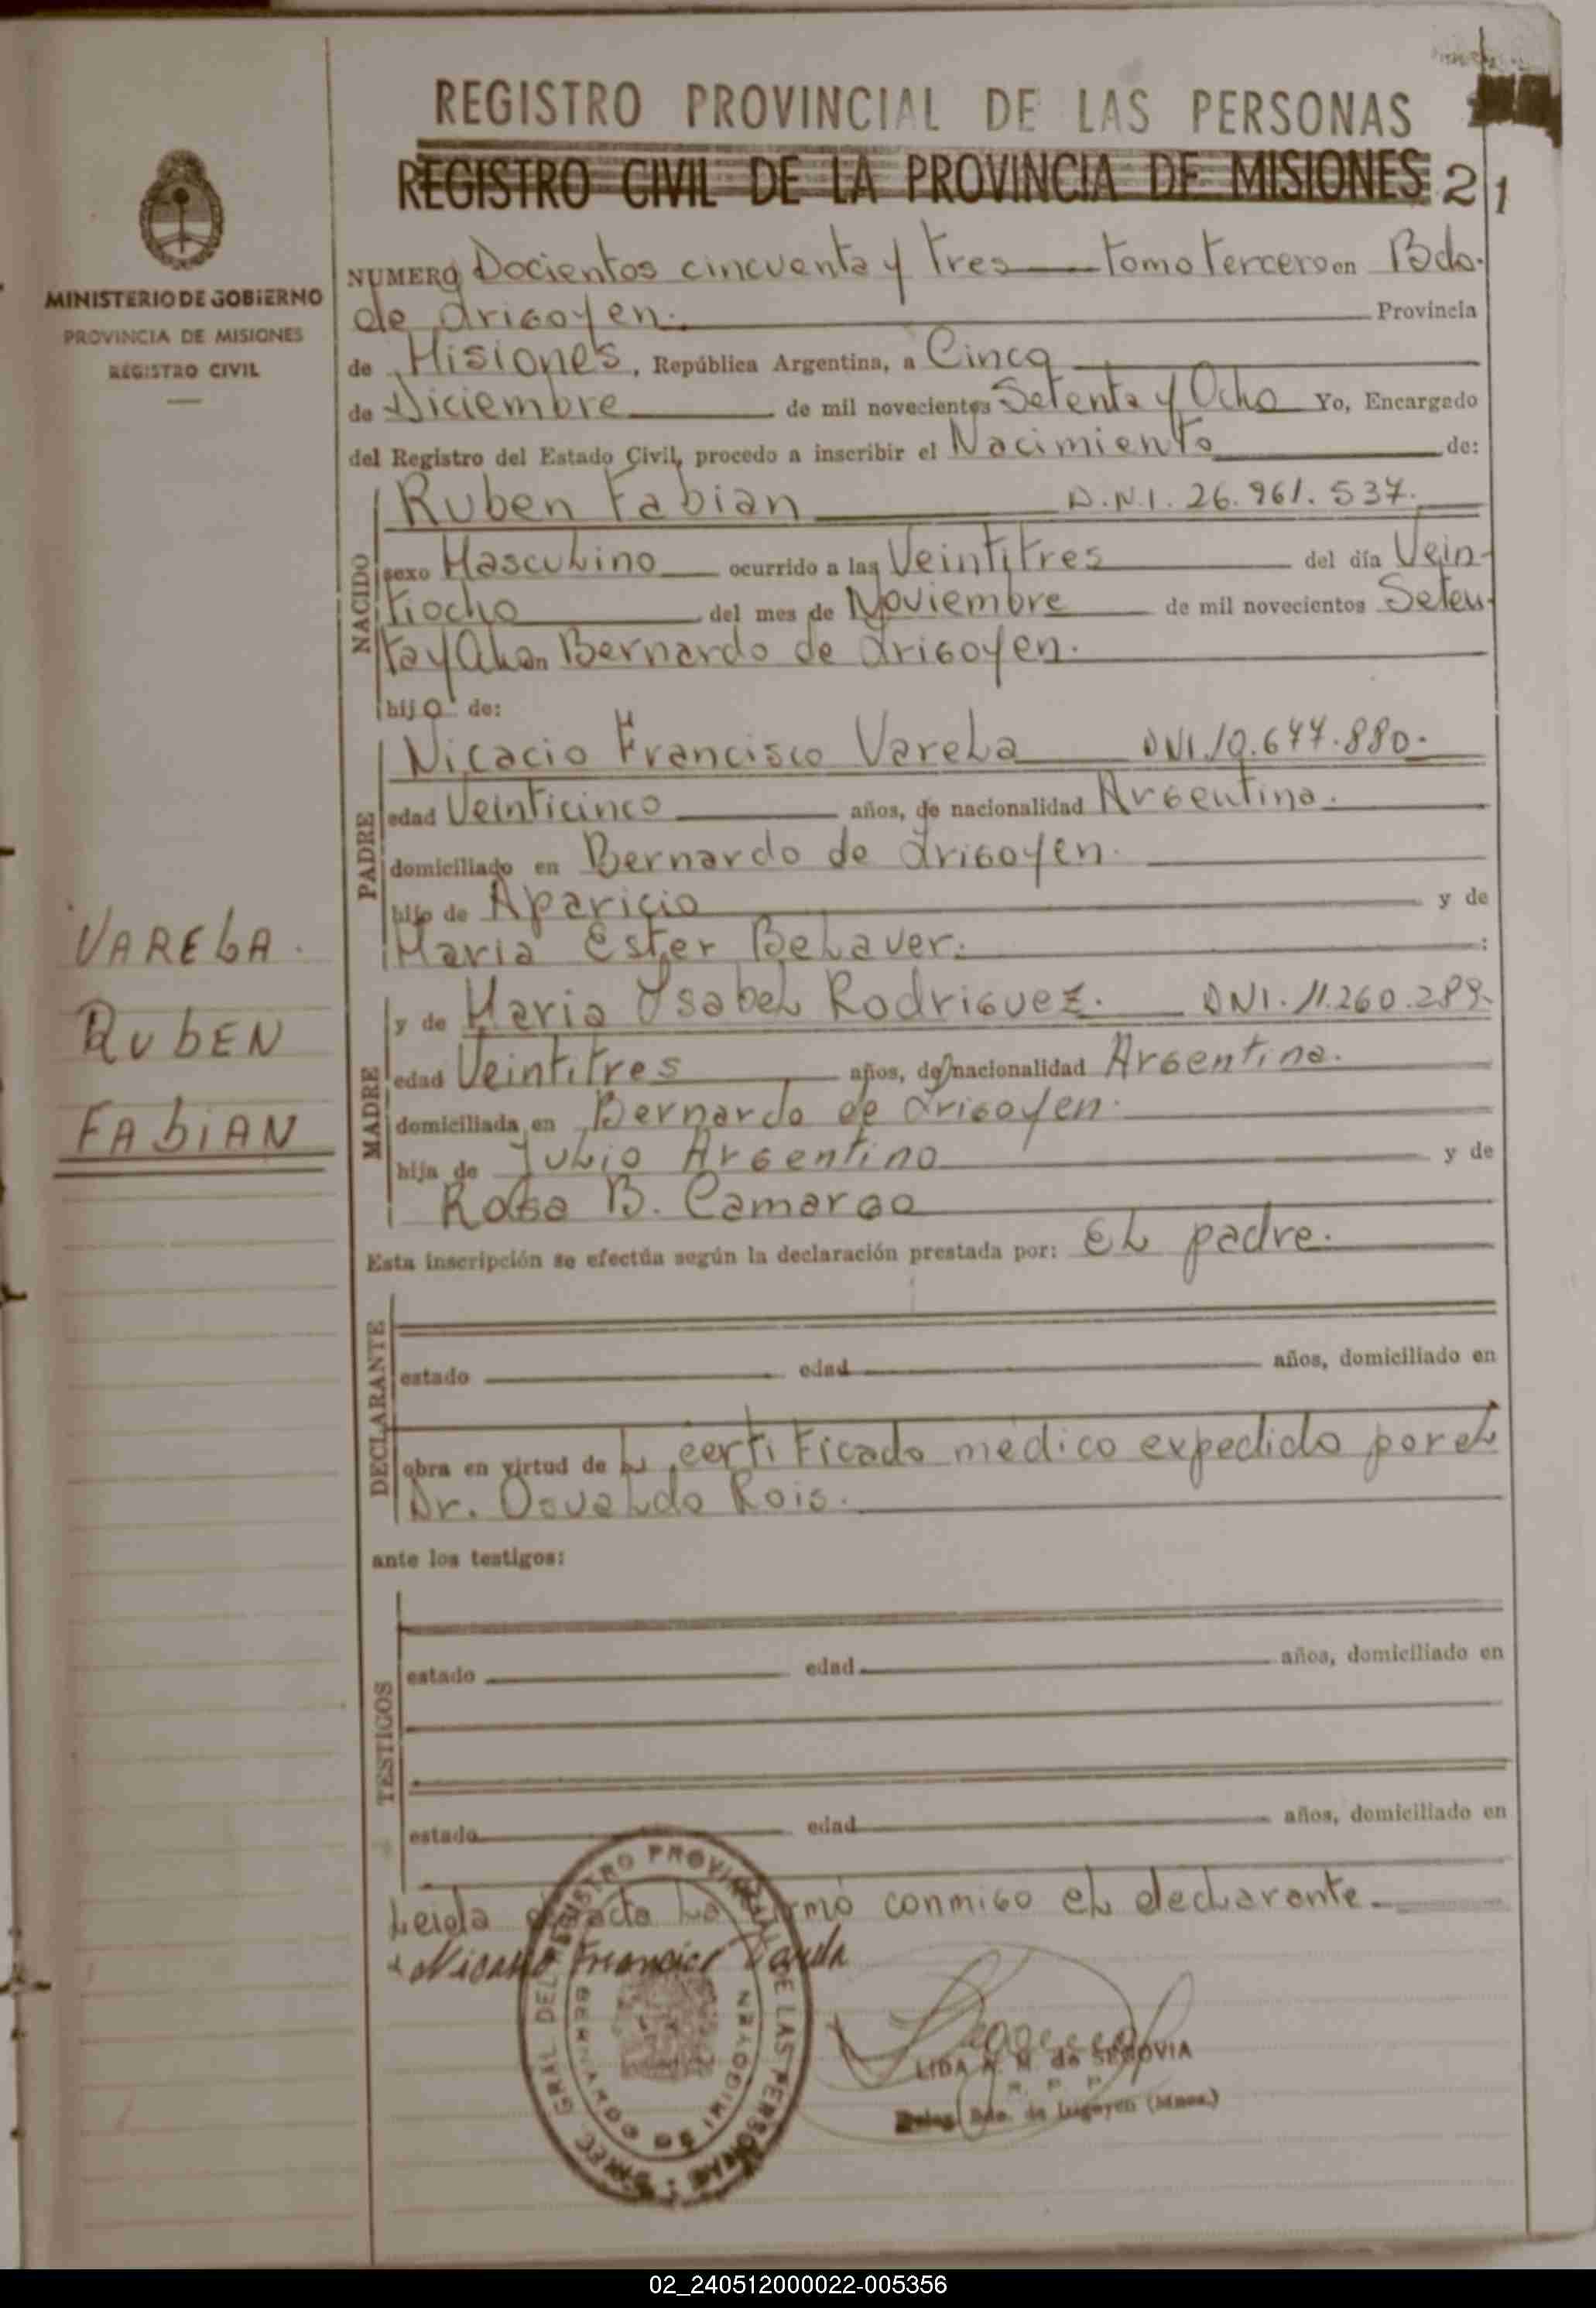 REGISTRO PROVINCIAL DE LAS PERSONAS
REGISTRO CIVIL DE LA PROVINCIA DE MISIONES 21
MINISTERIO DE GOBIERNO
PROVINCIA DE MISIONES
REGISTRO CIVIL
NUMERO Docientos cincuenta y tres tomo tercero en Bdo.
de Irigoyen. Provincia
de Misiones, República Argentina, a Cinco
de Diciembre de mil novecientos Setenta y Ocho Yo, Encargado
del Registro del Estado Civil, procedo a inscribir el Nacimiento de:
NACIDO
Ruben Fabian D.N.I. 26.961.537.
sexo Masculino ocurrido a las Veintitres del día Vein-
tiocho del mes de Noviembre de mil novecientos Seten-
ta y Ocho en Bernardo de Irigoyen.
hijo de:
PADRE
Nicacio Francisco Varela DNI.10.677.880.
edad Veinticinco años, de nacionalidad Argentina.
domiciliado en Bernardo de Irigoyen.
hijo de Aparicio y de
Maria Ester Belaver. :
VARELA.
RUBEN
FABIAN
MADRE
y de Maria Ysabel Rodriguez. DNI. 11.260.289.
edad Veintitres años, de nacionalidad Argentina.
domiciliada en Bernardo de Irigoyen.
hija de Julio Argentino y de
Rosa B. Camargo
Esta inscripción se efectúa según la declaración prestada por: El padre.
DECLARANTE
estado edad años, domiciliado en
obra en virtud de certificado medico expedido por el
Dr. Osvaldo Rois.
ante los testigos:
TESTIGOS
estado edad años, domiciliado en
estado edad años, domiciliado en
Leida el acta la firmó conmigo el declarante.
Nicacio Francisco Varela
DIREC. GRAL DEL REGISTRO PROVINCIAL DE LAS PERSONAS
BERNARDO DE IRIGOYEN
LIDA N. M. de SEGOVIA
R. P. P.
Deleg. Bdo. de Irigoyen (Mnes.)
02_240512000022-005356